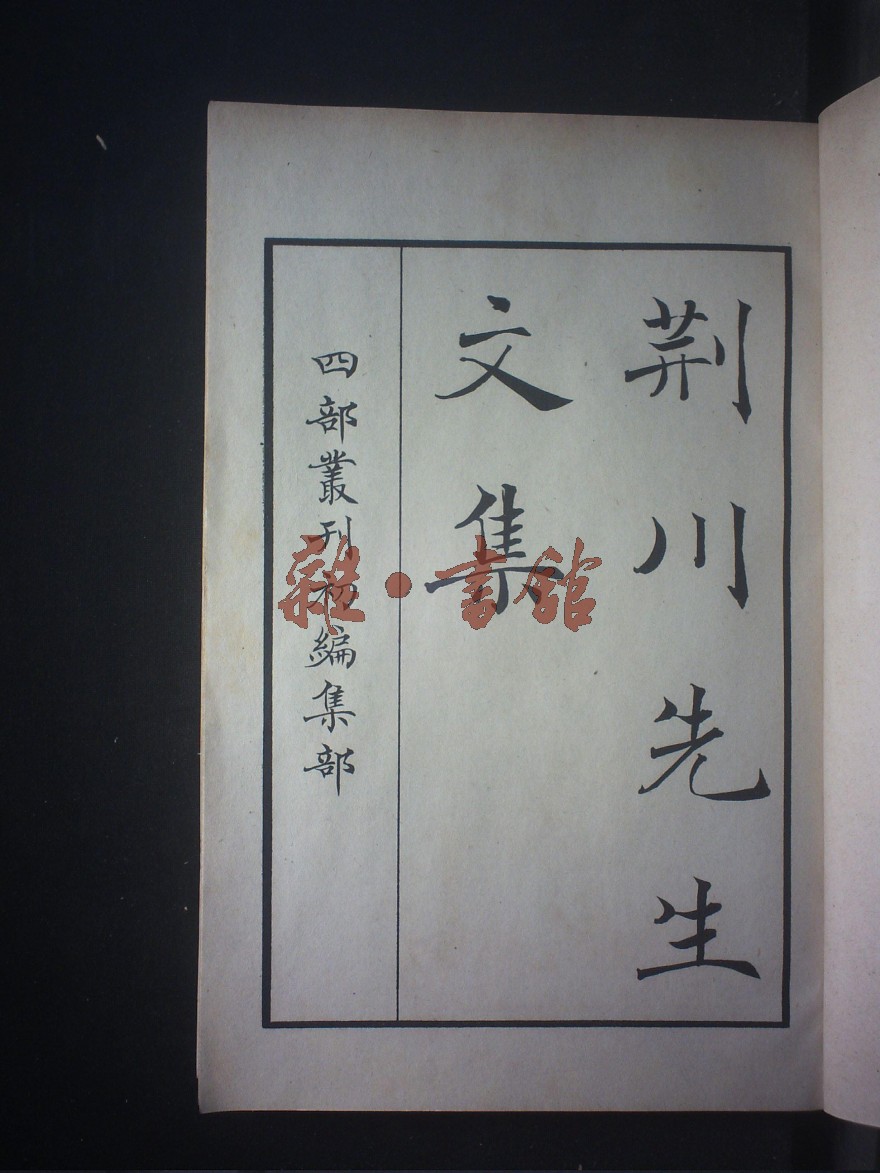 荆川先生
文集
四部叢刊初編集部
雜·書館